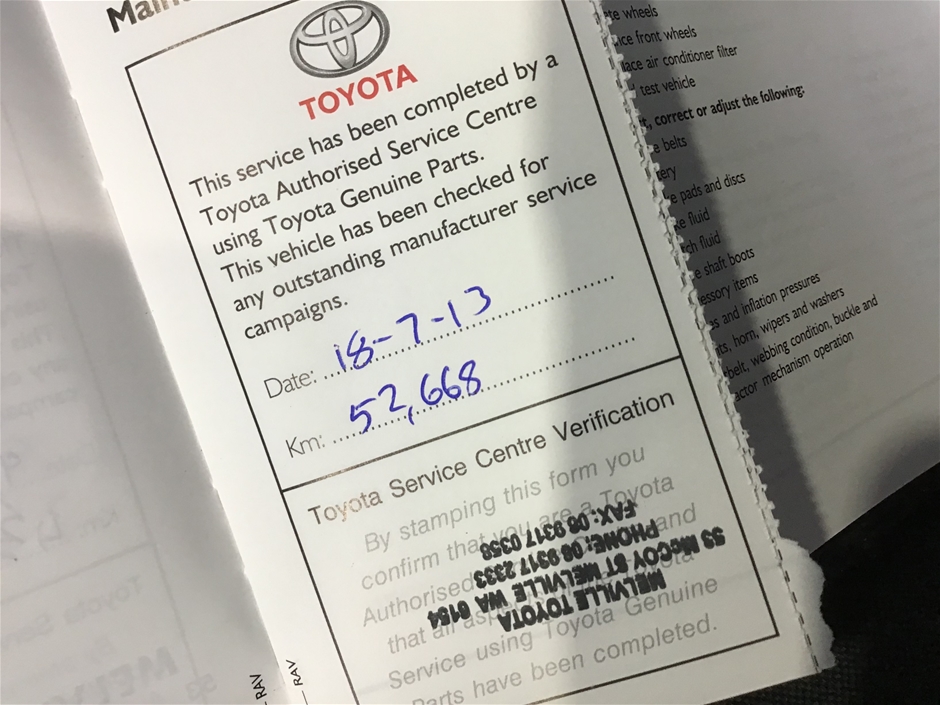 TOYOTA
This service has been completed by a
Toyota Authorised Service Centre
using Toyota Genuine Parts.
This vehicle has been checked for
any outstanding manufacturer service
campaigns.
Date: 18-7-13
Km: 52,668
Toyota Service Centre Verification
By stamping this form you
confirm that you are a Toyota
Authorised and
that all
Service using Toyota Genuine
Parts have been completed.
MELVILLE TOYOTA
53 McCOY ST MELVILLE WA 6154
PHONE: 08 9317 2333
FAX: 08 9317 0358
RAV
RAV
wheels
front wheels
air conditioner filter
test vehicle
, correct or adjust the following:
belts
pads and discs
fluid
fluid
shaft boots
items
and inflation pressures
, horn, wipers and washers
belt, webbing condition, buckle and
mechanism operation